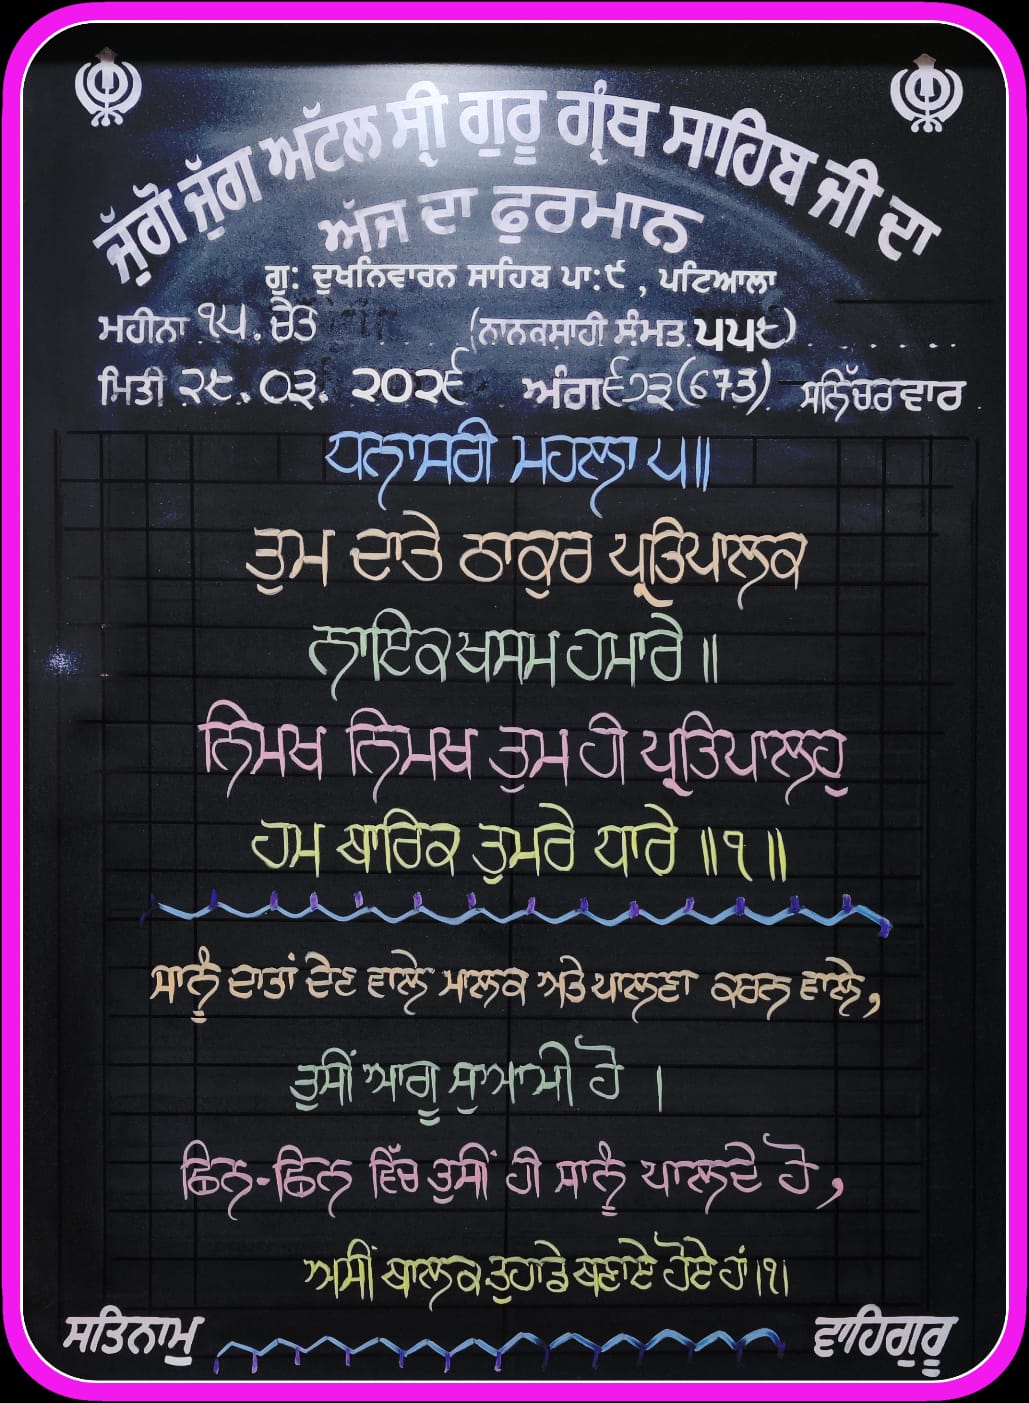 ਜੁੱਗੋ ਜੁੱਗ ਅੱਟਲ ਸ੍ਰੀ ਗੁਰੂ ਗ੍ਰੰਥ ਸਾਹਿਬ ਜੀ ਦਾ
ਅੱਜ ਦਾ ਫੁਰਮਾਨ
ਗੁ: ਦੁਖਨਿਵਾਰਨ ਸਾਹਿਬ ਪਾ:੯ , ਪਟਿਆਲਾ
ਮਹੀਨਾ ੧੫. ਚੇਤ (ਨਾਨਕਸ਼ਾਹੀ ਸੰਮਤ. ੫੫੬)
ਮਿਤੀ ੨੮. ੦੩. ੨੦੨੬ ਅੰਗ ੬੭੩(673) ਸਨਿੱਚਰ ਵਾਰ
ਧਨਾਸਰੀ ਮਹਲਾ ੫॥
ਤੁਮ ਦਾਤੇ ਠਾਕੁਰ ਪ੍ਰਤਿਪਾਲਕ
ਨਾਇਕ ਖਸਮ ਹਮਾਰੇ ॥
ਨਿਮਖ ਨਿਮਖ ਤੁਮ ਹੀ ਪ੍ਰਤਿਪਾਲਹੁ
ਹਮ ਬਾਰਿਕ ਤੁਮਰੇ ਧਾਰੇ ॥੧॥
ਸਾਨੂੰ ਦਾਤਾਂ ਦੇਣ ਵਾਲੇ ਮਾਲਕ ਅਤੇ ਪਾਲਣਾ ਕਰਨ ਵਾਲੇ,
ਤੁਸੀਂ ਆਗੂ ਸੁਆਮੀ ਹੋ ।
ਛਿਨ-ਛਿਨ ਵਿੱਚ ਤੁਸੀਂ ਹੀ ਸਾਨੂੰ ਪਾਲਦੇ ਹੋ,
ਅਸੀਂ ਬਾਲਕ ਤੁਹਾਡੇ ਬਣਾਏ ਹੋਏ ਹਾਂ।੧।
ਸਤਿਨਾਮੁ ਵਾਹਿਗੁਰੂ